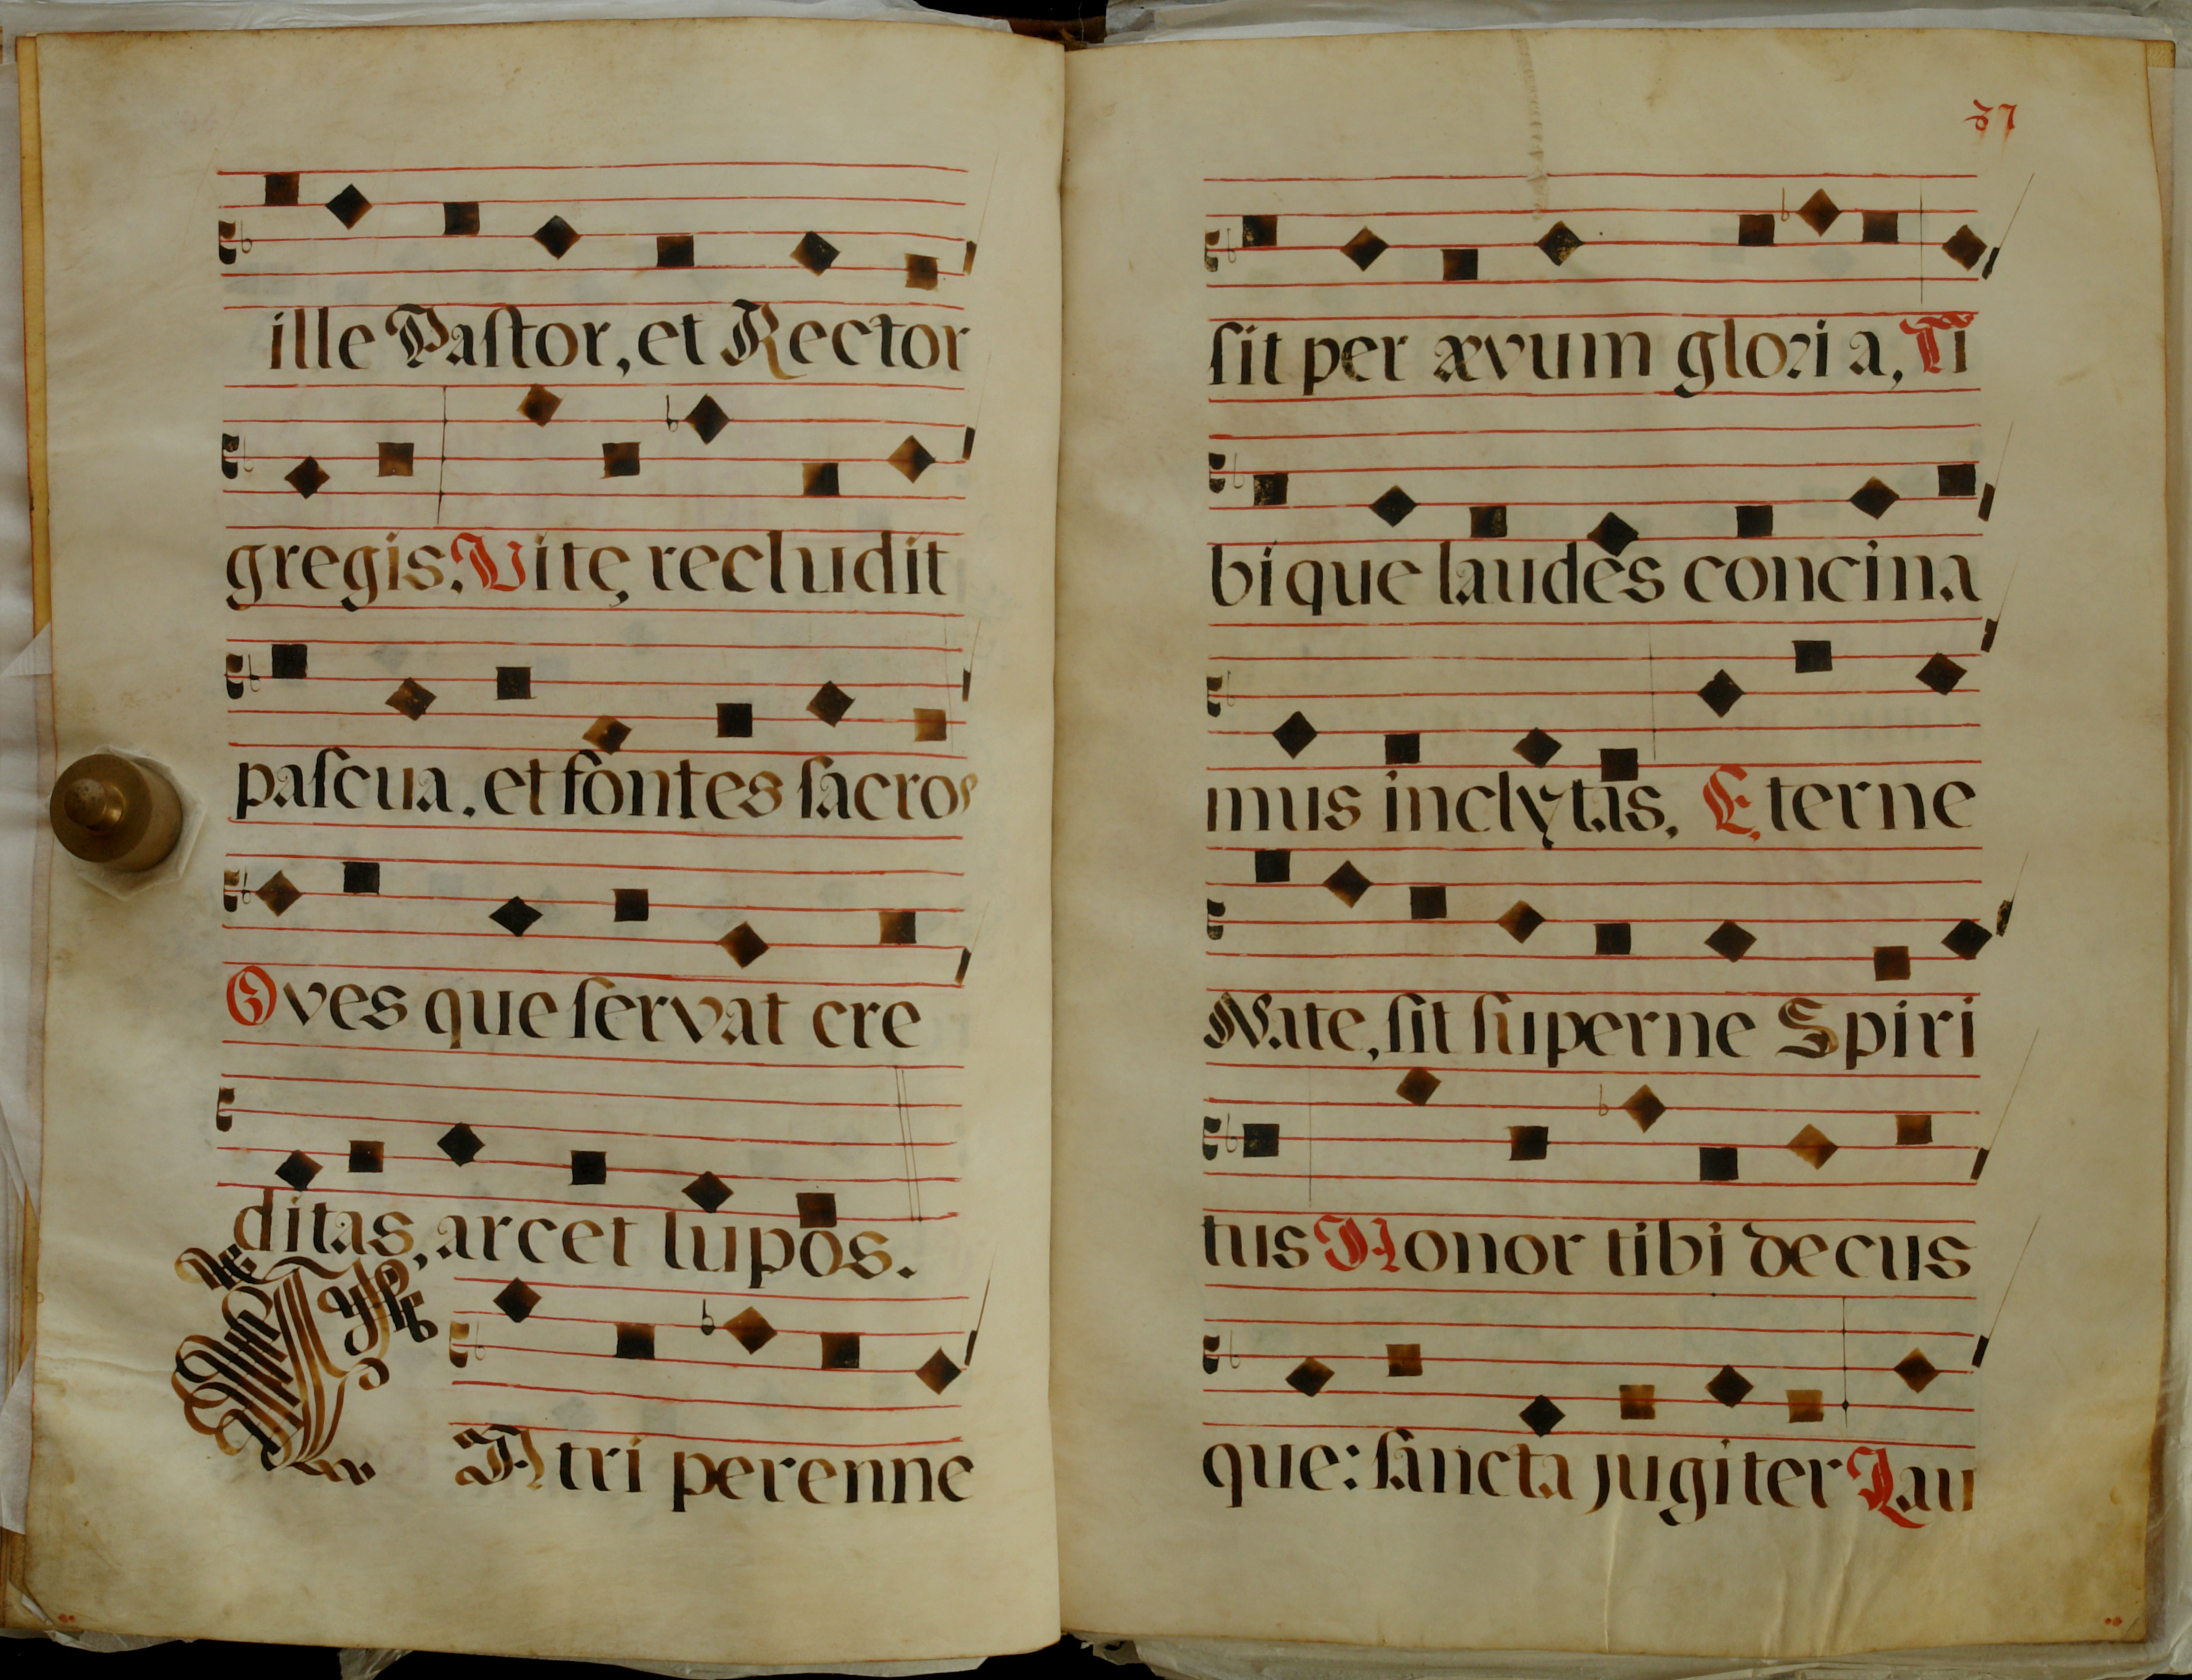 ille Paſtor, et Rector
gregis. Vitę recludit
paſcua, et fontes ſacros
Oves que ſervat cre
ditas, arcet lupos.
Patri perenne
37
ſit per ævum gloria, Ti
bique laudes concina
mus inclytas, Eterne
Nate, ſit ſuperne Spiri
tus Honor tibi decus
que: ſancta jugiter Lau